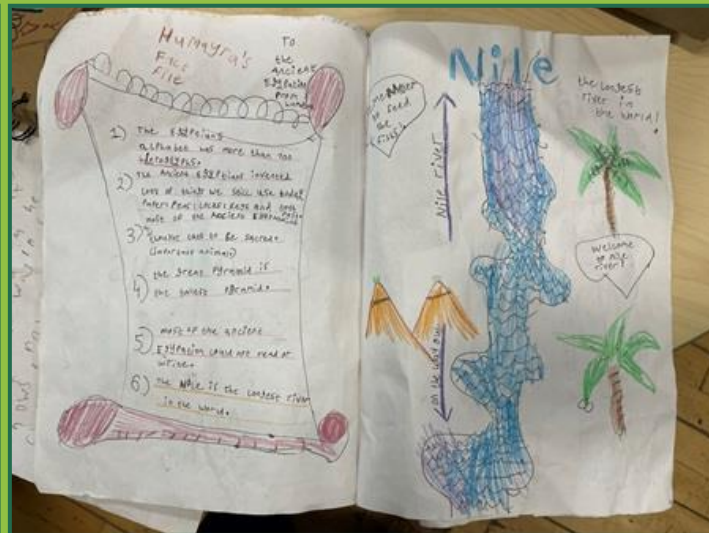 Humayra's
Fact
File
To
the
Ancient
Egyptians
From
London
1) The Egyptians
alphabet was more than 700
2) The Ancient Egyptians invented
Lots of things we still use today
Paper, Pens, Locks, Keys and
most of the Ancient Egyptian
3)
cats to be sacred.
(important animal)
4) the great Pyramid is
the tallest Pyramid.
5) most of the ancient
Egyptian could not read or
write.
6) the Nile is the Longest river
in the world.
Nile
the longest
river in
the world!
to feed
the
Nile river
Welcome
to nile
river!
on the way